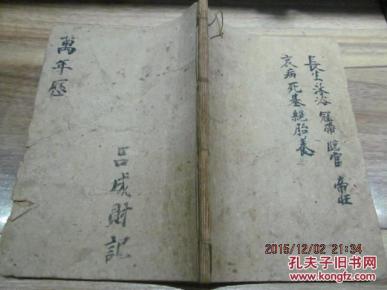 長生沐浴 冠帶 臨官 帝旺
衰病死墓絕胎養
呂成財記
萬年厯
2015/12/02 21:34
孔夫子旧书网